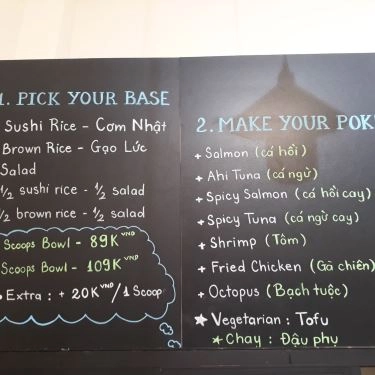 1. PICK YOUR BASE
Sushi Rice - Cơm Nhật
Brown Rice - Gạo Lức
Salad
1/2 sushi rice - 1/2 salad
1/2 brown rice - 1/2 salad
Scoops Bowl - 89K VND
Scoops Bowl - 109K VND
Extra : + 20K VND/1 Scoop
2. MAKE YOUR POK
+ Salmon (cá hồi)
+ Ahi Tuna (cá ngừ)
+ Spicy Salmon (cá hồi cay)
+ Spicy Tuna (cá ngừ cay)
+ Shrimp (Tôm)
+ Fried Chicken (Gà chiên)
+ Octopus (Bạch tuộc)
★ Vegetarian : Tofu
★ Chay : Đậu phụ